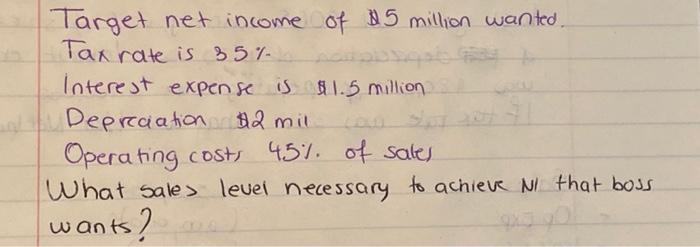 Target net income of $5 million wanted.
Tax rate is 35%
Interest expense is $1.5 million
Depreciation $2 mil
Operating costs 45% of sales
What sales level necessary to achieve NI that boss
wants?